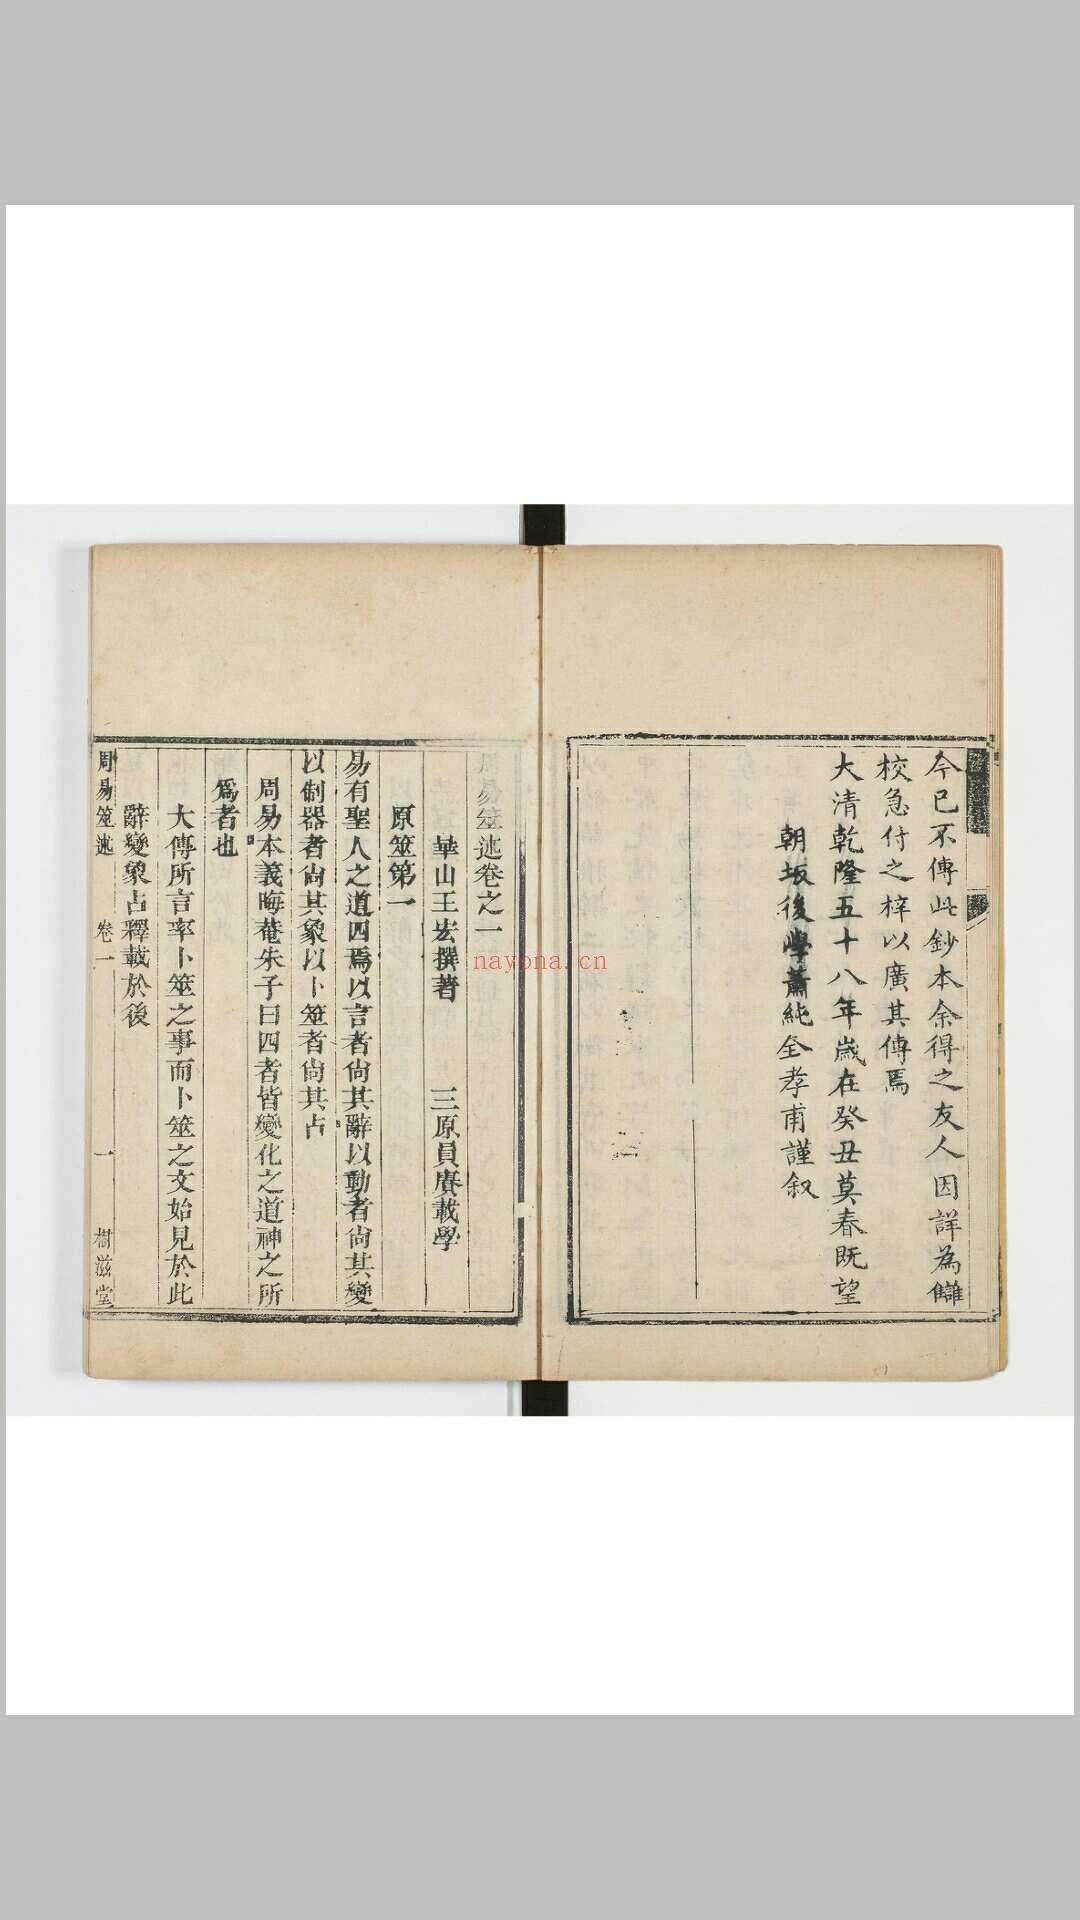 今已不傳此鈔本余得之友人因詳為讎
校急付之梓以廣其傳焉
大清乾隆五十八年歲在癸丑莫春既望
朝坂後學蕭純全孝甫謹叙
周易筮述卷之一
華山王宏撰著
三原員賡載學
原筮第一
易有聖人之道四焉以言者尙其辭以動者尙其變
以制器者尙其象以卜筮者尙其占
周易本義晦菴朱子曰四者皆變化之道神之所
爲者也
大傳所言率卜筮之事而卜筮之文始見於此
辭變象占釋載於後
周易筮述
卷一
一
樹滋堂
nayona.cn